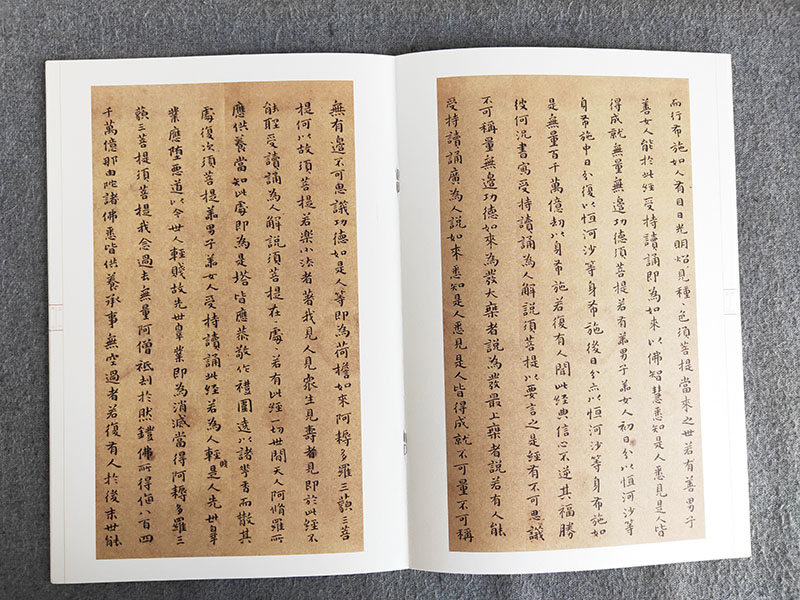 而行布施如人有目日光明炤見種〻色須菩提當來之世若有善男子
善女人能於此經受持讀誦即為如來以佛智慧悉知是人悉見是人皆
得成就無量無邊功德須菩提若有善男子善女人初日分以恒河沙等
身布施中日分復以恒河沙等身布施後日分亦以恒河沙等身布施如
是無量百千萬億劫以身布施若復有人聞此經典信心不逆其福勝
彼何況書寫受持讀誦為人解說須菩提以要言之是經有不可思議
不可稱量無邊功德如來為發大乘者說為發最上乘者說若有人能
受持讀誦廣為人說如來悉知是人悉見是人皆得成就不可量不可稱
無有邊不可思議功德如是人等即為荷擔如來阿耨多羅三藐三菩
提何以故須菩提若樂小法者著我見人見眾生見壽者見即於此經不
能聽受讀誦為人解說須菩提在〻處〻若有此經一切世間天人阿脩羅所
應供養當知此處即為是塔皆應恭敬作禮圍遶以諸華香而散其
處復次須菩提善男子善女人受持讀誦此經若為人輕賤是人先世罪
業應墮惡道以今世人輕賤故先世罪業即為消滅當得阿耨多羅三
藐三菩提須菩提我念過去無量阿僧祇劫於然鐙佛前得值八百四
千萬億那由陀諸佛悉皆供養承事無空過者若復有人於後末世能